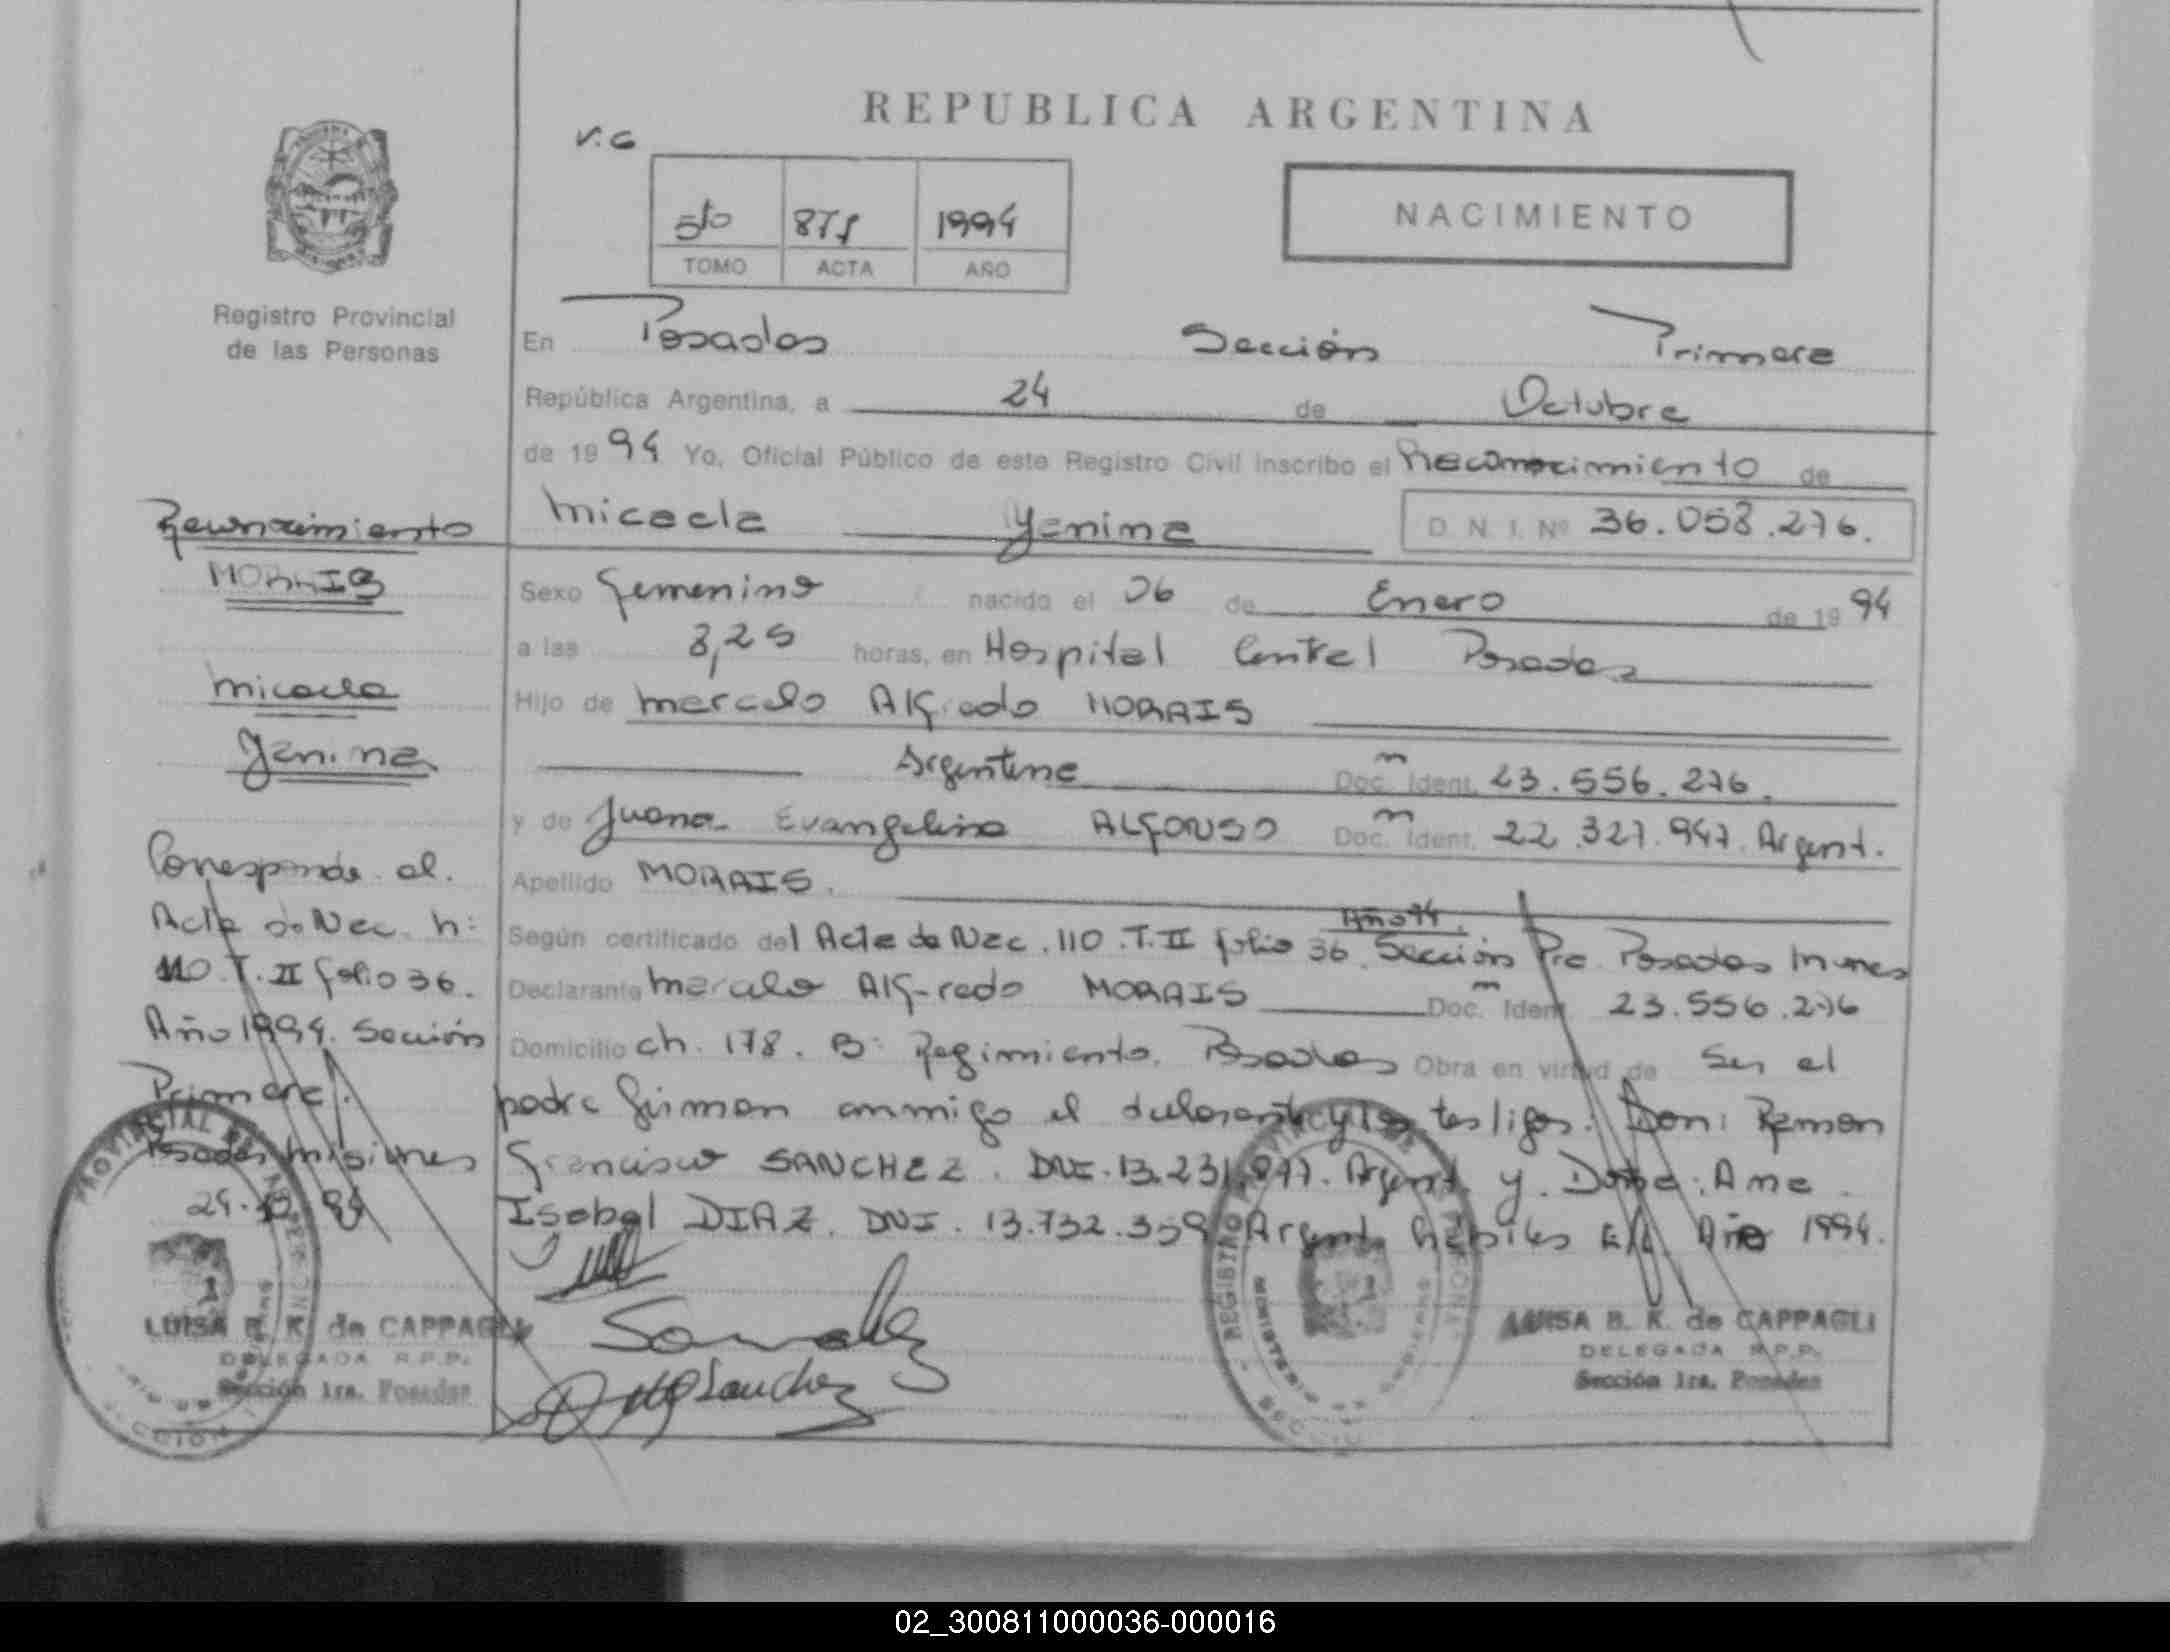 REPUBLICA ARGENTINA
V.G
5to 871 1994
TOMO ACTA AÑO
NACIMIENTO
Registro Provincial
de las Personas
En Posadas Sección Primera
República Argentina, a 24 de Octubre
de 1994 Yo, Oficial Público de este Registro Civil inscribo el Reconocimiento de
Micaela Yanina D. N. I. Nº 36.058.276.
Sexo Femenino nacido el 06 de Enero de 1994
a las 8,25 horas, en Hospital Central Posadas
Hijo de Marcelo Alfredo MORAIS
Argentina Doc. Ident. 23.556.276.
y de Juana Evangelina ALFONSO Doc. Ident. 22.327.947. Argent.
Apellido MORAIS.
Año 94.
Según certificado del Acta de Nac. 110. T. II folio 36. Sección Pra. Posadas Mnes
Declarante Marcelo Alfredo MORAIS Doc. Ident. 23.556.276
Domicilio Ch. 178. B: Regimiento. Posadas Obra en virtud de Ser el
padre firman conmigo el declarante y los testigos: Don: Ramon
Francisco SANCHEZ. DNI. 13.231.877. Argent. y Doña: Ana
Isabel DIAZ. DNI. 13.732.359 Argent. Habiles Año 1994.
Reconocimiento
MORAIS
Micaela
Yanina
Corresponde al.
Acta de Nac. n:
110. T. II folio 36.
Año 1994. Sección
Primera.
Posadas Misiones
24.10.94
LUISA B. K. de CAPPAGLI
DELEGADA R.P.P.
Sección 1ra. Posadas
Sanchez
LUISA B. K. de CAPPAGLI
DELEGADA R.P.P.
Sección 1ra. Posadas
02_300811000036-000016